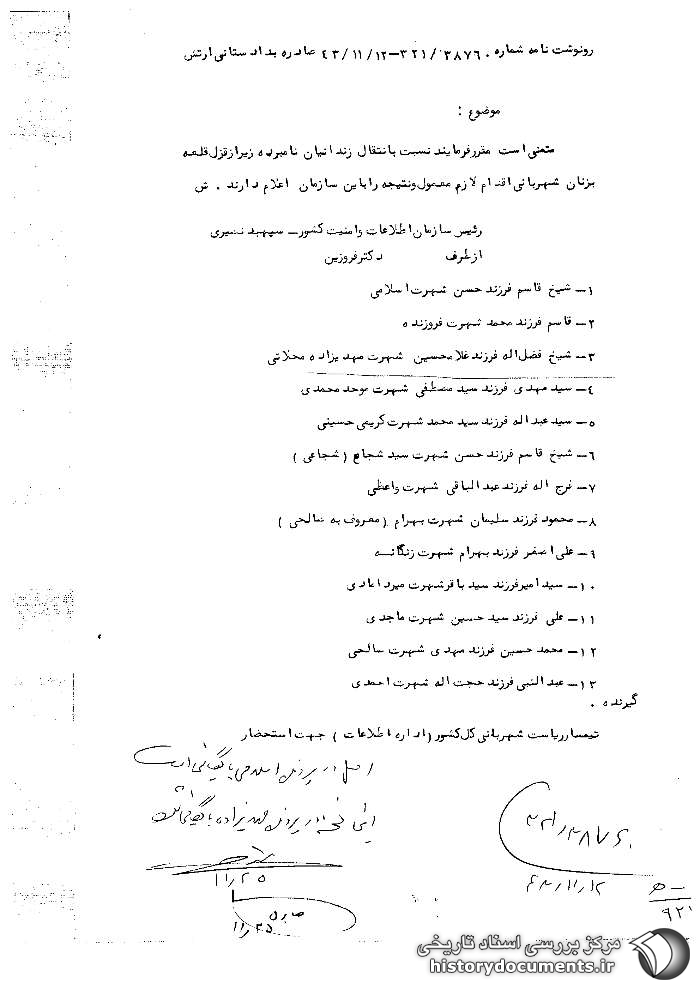 رونوشت نامه شماره ۳۲۱/۳۸۷۶۰-۴۳/۱۱/۱۲ صادره بدادستانی ارتش
موضوع :
متمنی است مقرر فرمایند نسبت بانتقال زندانیان نامبرده زیر از قزل قلعه
بزندان شهربانی اقدام لازم معمول و نتیجه را باین سازمان اعلام دارند . ش
رئیس سازمان اطلاعات و امنیت کشور – سپهبد نصیری
از طرف دکتر فروزین
۱– شیخ قاسم فرزند حسن شهرت اسلامی
۲– قاسم فرزند محمد شهرت فروزنده
۳– شیخ فضل اله فرزند غلامحسین شهرت مهدیزاده محلاتی
۴– سید مهدی فرزند سید مصطفی شهرت موحد محمدی
۵– سید عبداله فرزند سید محمد شهرت کریمی حسینی
۶– شیخ قاسم فرزند حسن شهرت سید شجاع ( شجاعی )
۷– فرج اله فرزند عبدالباقی شهرت واعظی
۸– محمود فرزند سلیمان شهرت بهرام ( معروف به صالحی )
۹– علی اصغر فرزند بهرام شهرت زنگانه
۱۰– سید امیر فرزند سید باقر شهرت میردامادی
۱۱– علی فرزند سید حسین شهرت ماجدی
۱۲– محمد حسین فرزند مهدی شهرت صالحی
۱۳– عبدالنبی فرزند حجت اله شهرت احمدی
گیرنده .
تیمسار ریاست شهربانی کل کشور ( اداره اطلاعات ) جهت استحضار
اصل در پرونده اسلامی بایگانی است
این نسخه در پرونده مهدیزاده بایگانی شود
۱۱/۲۵
۱۱/۲۵
۳۲۱/۳۸۷۶۰
۴۳/۱۱/۱۲
ه–
۹۲۱
مرکز بررسی اسناد تاریخی
historydocuments.ir